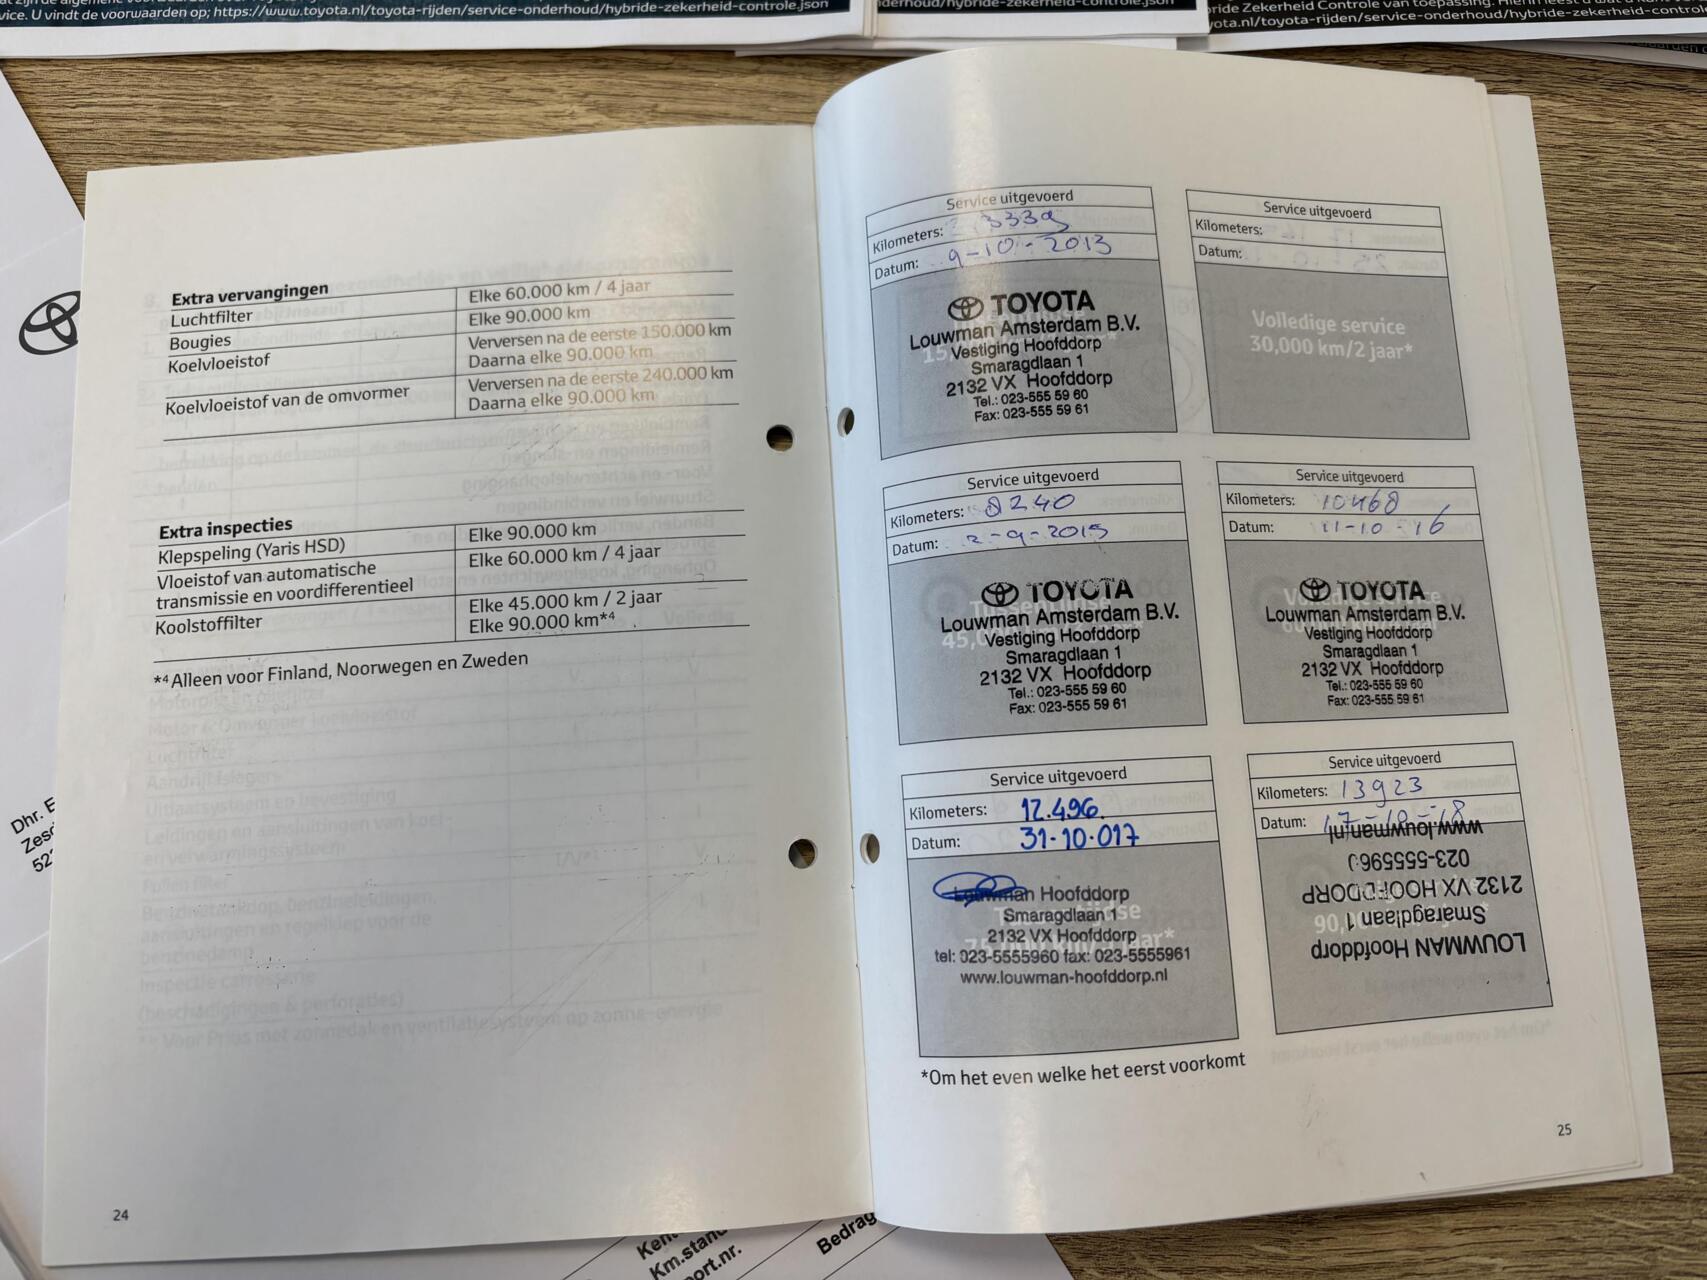 vice. U vindt de voorwaarden op; https://www.toyota.nl/toyota-rijden/service-onderhoud/hybride-zekerheid-controle.json
derhoud/hybride-zekerheid-controle.json
ride Zekerheid Controle van toepassing. Hierin leest u wat u
yota.nl/toyota-rijden/service-onderhoud/hybride-zekerheid-control
Extra vervangingen
Luchtfilter Elke 60.000 km / 4 jaar
Bougies Elke 90.000 km
Koelvloeistof Verversen na de eerste 150.000 km
Daarna elke 90.000 km
Koelvloeistof van de omvormer Verversen na de eerste 240.000 km
Daarna elke 90.000 km
Extra inspecties
Klepspeling (Yaris HSD) Elke 90.000 km
Vloeistof van automatische Elke 60.000 km / 4 jaar
transmissie en voordifferentieel
Koolstoffilter Elke 45.000 km / 2 jaar
Elke 90.000 km*4
*4 Alleen voor Finland, Noorwegen en Zweden
24
Service uitgevoerd
Kilometers: 3339
Datum: 9-10-2013
TOYOTA
Louwman Amsterdam B.V.
Vestiging Hoofddorp
Smaragdlaan 1
2132 VX Hoofddorp
Tel.: 023-555 59 60
Fax: 023-555 59 61
Service uitgevoerd
Kilometers:
Datum:
Volledige service
30,000 km/2 jaar*
Service uitgevoerd
Kilometers: 8240
Datum: 2-9-2015
TOYOTA
Louwman Amsterdam B.V.
Vestiging Hoofddorp
Smaragdlaan 1
2132 VX Hoofddorp
Tel.: 023-555 59 60
Fax: 023-555 59 61
Service uitgevoerd
Kilometers: 10468
Datum: 11-10-16
TOYOTA
Louwman Amsterdam B.V.
Vestiging Hoofddorp
Smaragdlaan 1
2132 VX Hoofddorp
Tel.: 023-555 59 60
Fax: 023-555 59 61
Service uitgevoerd
Kilometers: 12.496.
Datum: 31-10-017
Louwman Hoofddorp
Smaragdlaan 1
2132 VX Hoofddorp
tel: 023-5555960 fax: 023-5555961
www.louwman-hoofddorp.nl
75,000 km/5 jaar*
Service uitgevoerd
Kilometers: 13923
Datum: 17-10-18
LOUWMAN Hoofddorp
Smaragdlaan 1
2132 VX HOOFDDORP
023-5555960
www.louwman.nl
*Om het even welke het eerst voorkomt
25
Dhr. E
Km.stand
Bedrag